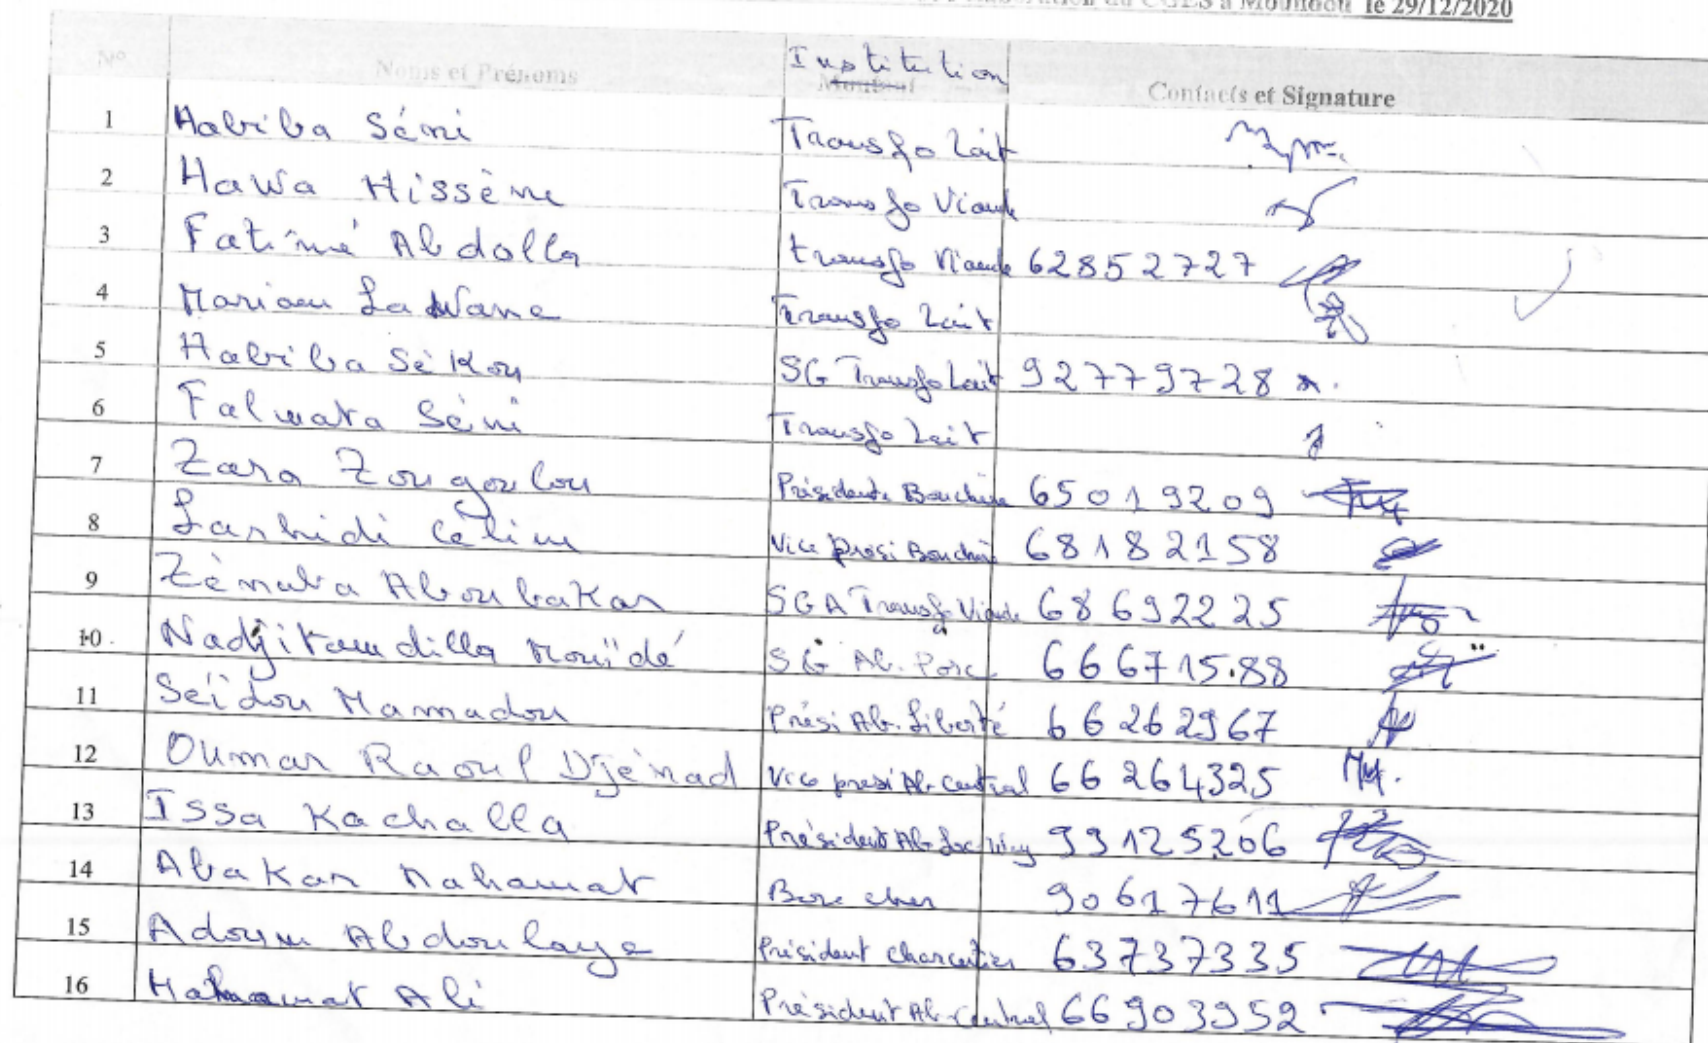 du CGES à Moundou le 29/12/2020
N° Noms et Prénoms Institution Contacts et Signature
Montant
1 Habiba Séni Transfo Lait
2 Hawa Hissène Transfo Viande
3 Fatimé Abdolla transfo Viande 62852727
4 Mariam LaWane Transfo Lait
5 Habiba SéKou SG Transfo Lait 92779728
6 Falmata Séni Transfo Lait
7 Zara Zougoulou Présidente Bouchère 65019209
8 Larhidi Céline Vice presi Bouchère 68182158
9 Zénaba AboubaKar SGA Transfo Viande 68692225
10. Nadjitamdilla Mouïdé SG Ab. Porc 666715.88
11 Seïdou Mamadou Prési Ab. Liberté 66262967
12 Oumar Raoul Djénad Vice presi Ab. Central 66264325
13 Issa Kachalla Président Ab 99125206
14 AbaKar Mahamat Boucher 90617611
15 Adoum Abdoulaye Président charcutier 63737335
16 Mahamat Ali Président Ab. Central 66903952